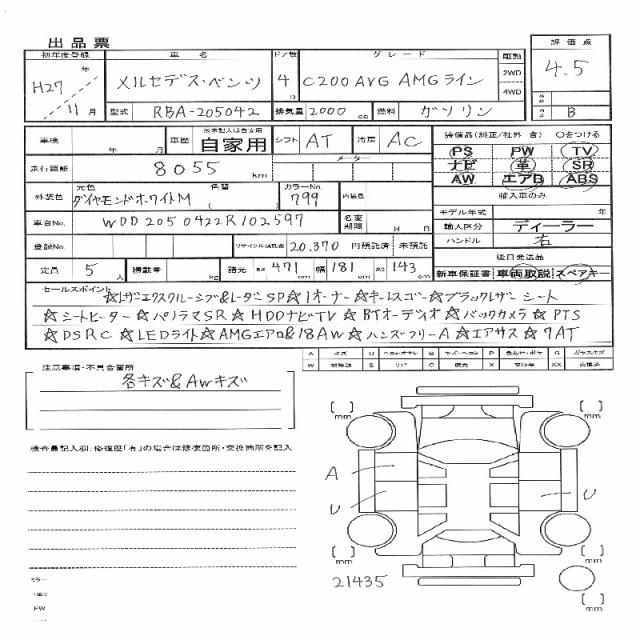 出品票
初年度登録 車名 ドア数 グレード 駆動 評価点
H27年 11月 メルセデス・ベンツ 4 C200 AVG AMGライン 2WD 4WD 4.5
型式 RBA-205042 排気量 2000 cc 燃料 ガソリン B
車検 年 月 車歴 自家用 シフト AT 冷房 AC 装備品(純正/社外 含) ○をつける
走行距離 8055 km メーター PS PW TV
ナビ 革 SR
AW エアB ABS
外装色 元色 ダイヤモンドホワイトM 色替 ( カラーNo. 799 内装色 輸入車のみ
モデル年式 年
車台No. WDD2050422R102597 名変期限 月 日 輸入区分 ディーラー
ハンドル 右
登録No. リサイクル預託金 20,370 円預託済 未預託 後日発送品
定員 5人 積載量 kg 諸元 長さ 471 幅 181 高さ 143 cm 新車保証書 車両取説 スペアキー
セールスポイント ☆レザーエクスクルーシブ&レーダーSP☆1オーナー☆キーレスゴー☆ブラックレザーシート
☆シートヒーター☆パノラマSR☆HDDナビTV☆BTオーディオ☆バックカメラ☆PTS
☆DSRC☆LEDライト☆AMGエアロ&18AW☆ハンズフリーA☆エアサス☆7AT
注意事項・不具合箇所
各キズ&AWキズ
検査員記入欄:修復歴「有」の場合は修復箇所・交換箇所を記入
[ ] mm [ ] mm
A
U U
[ ] mm [ ] mm
21435
[ ] mm